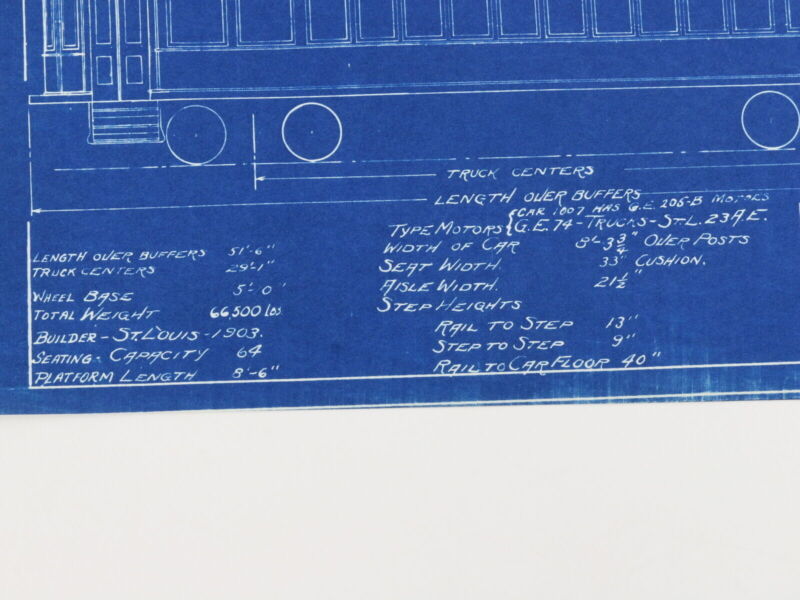 TRUCK CENTERS
LENGTH OVER BUFFERS
LENGTH OVER BUFFERS 51'-6"
TRUCK CENTERS 29'-1"
WHEEL BASE 5'-0"
TOTAL WEIGHT 66,500 lbs
BUILDER - ST. LOUIS - 1903.
SEATING - CAPACITY 64
PLATFORM LENGTH 8'-6"
{CAR 1007 HAS G.E. 205-B MOTORS
TYPE MOTORS {G.E. 74 - TRUCKS - ST. L. 23 A.E.
WIDTH OF CAR 8'-3 3/4" OVER POSTS
SEAT WIDTH. 33" CUSHION.
AISLE WIDTH. 21 1/2"
STEP HEIGHTS
RAIL TO STEP 13"
STEP TO STEP 9"
RAIL TO CAR FLOOR 40"